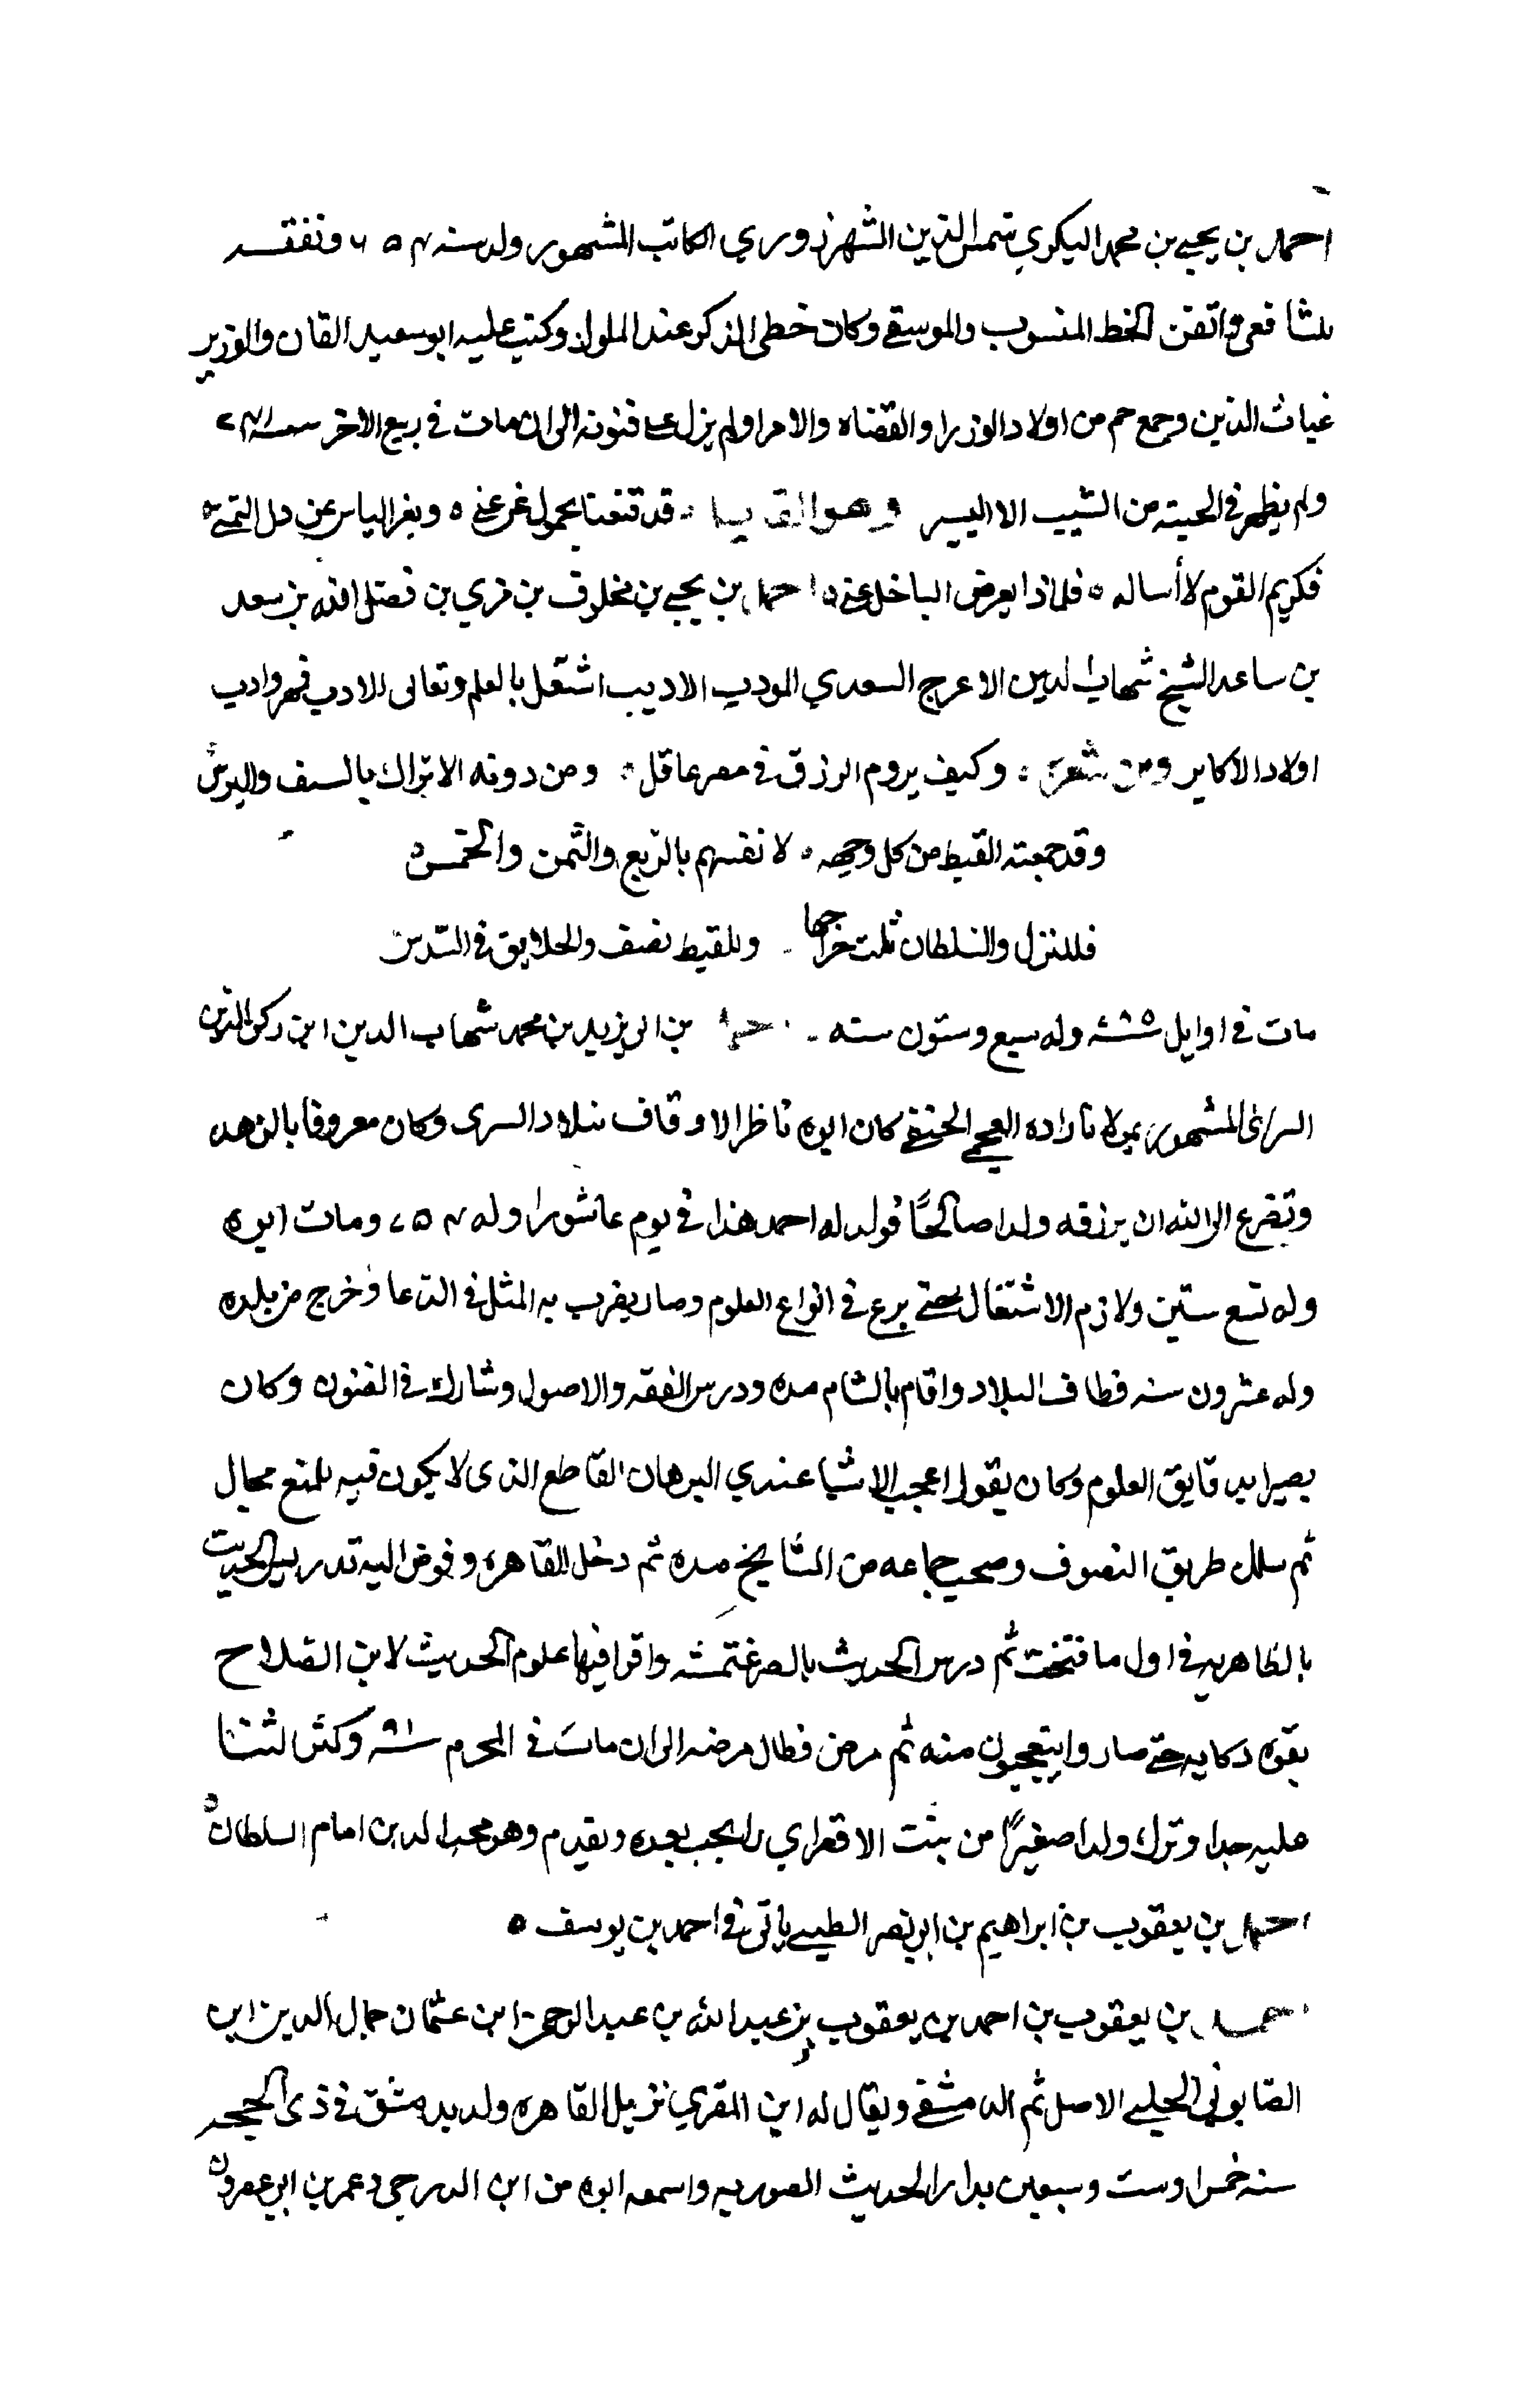 احمد بن يحيى بن محمد البكري شمس الدين الشهرزوري الكاتب المشهور ولد سنه ٦٥٤ وتفقه
للشافعي واتقن الخط المنسوب والموسيقى وكان حظي الذكر عند الملوك وكتب عليه ابو سعيد القان والوزير
غياث الدين وجمع جم من اولاد الوزرا والقضاه والامرا ولم يزل على فنونه الى ان مات في ربيع الاخر سنه ٧٤١
ولم يظهر في لحيته من الشيب الا اليسير وهو القايل قد قنعنا بخمول عن غنى ٥ وبعز الياس عن ذل التمني ٥
فكريم القوم لا أساله ٥ فلماذا يعرض الباخل عني ٥ احمد بن يحيى بن مخلوف بن مري بن فضل الله بن سعد
بن ساعد الشيخ شهاب الدين الاعرج السعدي المودب الاديب اشتغل بالعلم وتعانى الادب فمهر وادب
اولاد الاكابر ومن شعره وكيف يروم الرزق في مصر عاقل ومن دونه الاتراك بالسيف والترس
وقد جمعته القبط من كل وجهه ٥ لانفسهم بالربع والثمن والخمس ٥
فللترك والسلطان ثلث خراجها وللقبط نصف والخلايق في السدس
مات في اوايل سنه ٧٨٥ وله سبع وستون سنه احمد بن ابي يزيد بن محمد شهاب الدين ابن ركن الدين
السراي المشهور بمولانا زاده العجمي الحنفي كان ابوه ناظر الاوقاف ببلاد السراي وكان معروفا بالزهد
وتضرع الى الله ان يرزقه ولدا صالحًا فولد له احمد هذا في يوم عاشورا وله ٧٥٤ ومات ابوه
وله تسع سنين ولازم الاشتغال حتى برع في انواع العلوم وصار يضرب به المثل في الذكا وخرج من بلده
وله عشرون سنه فطاف البلاد واقام بالشام مده ودرس الفقه والاصول وشارك في الفنون وكان
بصيرا بدقايق العلوم وكان يقول اعجب الاشيا عندي البرهان القاطع الذي لا يكون فيه للمنع مجال
ثم سلك طريق التصوف وصحب جماعه من المشايخ مده ثم دخل القاهره وفوض اليه تدريس الحديث
بالظاهريه في اول ما فتحت ثم درس الحديث بالصرغتمشيه واقرا فيها علوم الحديث لابن الصلاح
بقوه ذكايه حتى صاروا يتعجبون منه ثم مرض فطال مرضه الى ان مات في المحرم سنه ٧٩١ وكثر الثنا
عليه جدا وترك ولدا صغيرًا من بنت الاقصراي وانجب بعده وتقدم وهو محب الدين امام السلطان ٥
احمد بن يعقوب بن ابراهيم بن ابي نصر الطيبي ياتي في احمد بن يوسف ٥
احمد بن يعقوب بن احمد بن يعقوب بن عبد الله بن عبد الرحمن ابن عثمان جمال الدين ابن
الصابوني الحلبي الاصل ثم الدمشقي ويقال له ابن المقري نزيل القاهره ولد بدمشق في ذي الحجه
سنه خمس او ست وسبعين بدار الحديث النوريه واسمعه ابوه من ابن الدرجي وعمر بن ابي عصرون